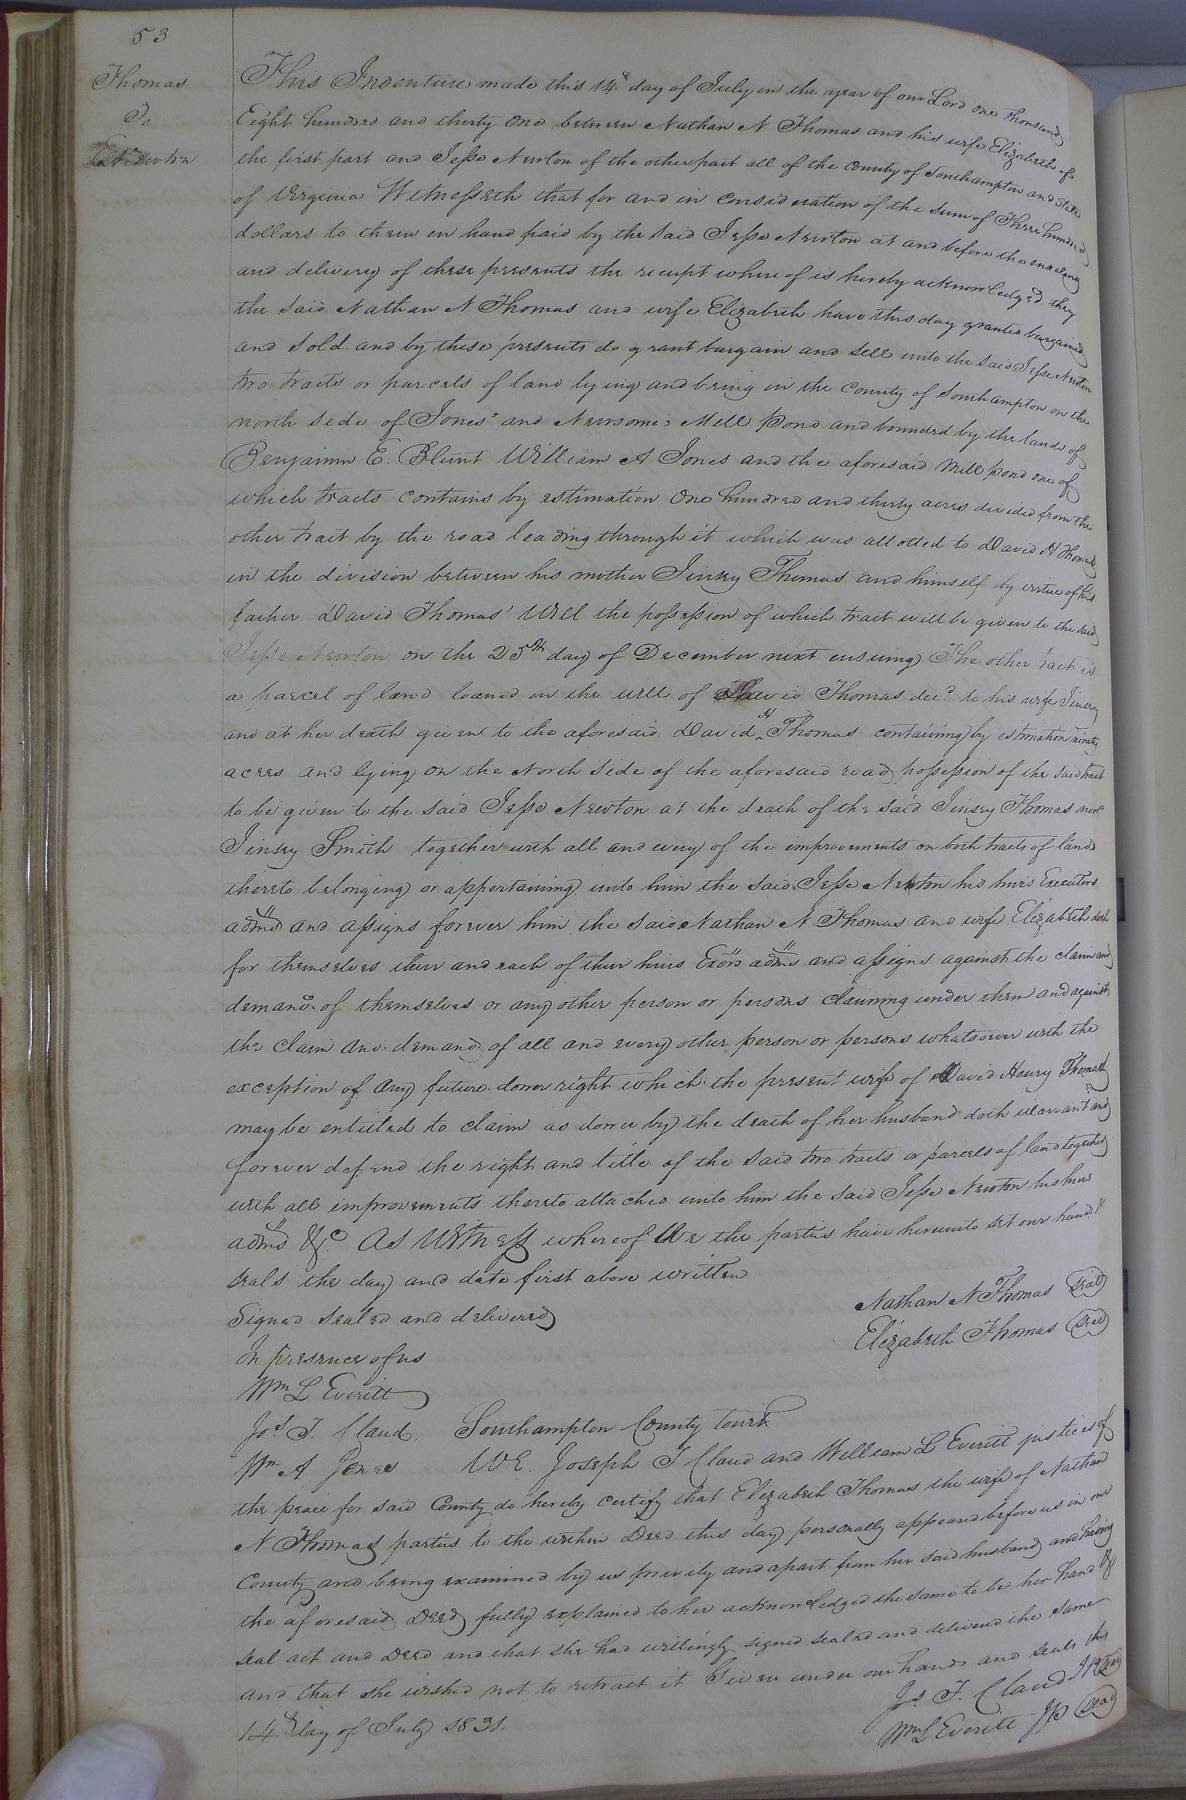 53
Thomas
To
Newton
This Indenture made this 14th day of July in the year of our Lord one thousand
Eight hundred and thirty one between Nathan N Thomas and his wife Elizabeth of
the first part and Jesse Newton of the other part all of the County of Southampton and State
of Virginia Witnesseth that for and in consideration of the sum of Three hundred
dollars to them in hand paid by the said Jesse Newton at and before the ensealing
and delivery of these presents the receipt whereof is hereby acknowledged they
the said Nathan N Thomas and wife Elizabeth have this day granted bargained
and sold and by these presents do grant bargain and sell unto the said Jesse Newton
two tracts or parcels of land lying and being in the County of Southampton on the
north side of Jones' and Newsoms Mill Pond and bounded by the lands of
Benjamin E. Blunt William A Jones and the aforesaid Mill pond one of
which tracts contains by estimation One hundred and thirty acres divided from the
other tract by the road leading through it which was allotted to David H Thomas
in the division between his mother Jinsey Thomas and himself by virtue of his
father David Thomas' Will the possession of which tract will be given to the said
Jesse Newton on the 25th day of December next ensuing The other tract is
a parcel of land loaned in the will of David Thomas decd to his wife Jinsey
and at her death given to the aforesaid David H Thomas containing by estimation ninety
acres and lying on the North side of the aforesaid road possession of the said tract
to be given to the said Jesse Newton at the death of the said Jinsey Thomas now
Jinsey Smith together with all and every of the improvements on both tracts of land
thereto belonging or appertaining unto him the said Jesse Newton his heirs Executors
admrs and assigns forever him the said Nathan N Thomas and wife Elizabeth doth
for themselves their and each of their heirs Exors admrs and assigns against the claim and
demand of themselves or any other person or persons claiming under them and against
the claim and demand of all and every other person or persons whatsoever with the
exception of any future dower right which the present wife of David Henry Thomas
may be entitled to claim as dower by the death of her husband doth warrant and
forever defend the right and title of the said two tracts or parcels of land together
with all improvements thereto attached unto him the said Jesse Newton his heirs
admrs &c. As Witness whereof We the parties have hereunto set our hands
seals the day and date first above written
Signed sealed and delivered
In presence of us
Nathan N Thomas Seal
Elizabeth Thomas Seal
Wm L Everitt
Jos. T. Claud
Wm A Jones
Southampton County Court
We Joseph T Claud and William L Everitt justices of
the peace for said County do hereby certify that Elizabeth Thomas the wife of Nathan
N Thomas parties to the within Deed this day personally appeared before us in our
County and being examined by us privily and apart from her said husband and having
the aforesaid Deed fully explained to her acknowledged the same to be her hand &
seal act and Deed and that she had willingly signed sealed and delivered the same
and that she wished not to retract it Given under our hands and seals this
14th day of July 1831.
Js. T. Claud JP Seal
Wm L Everitt JP Seal